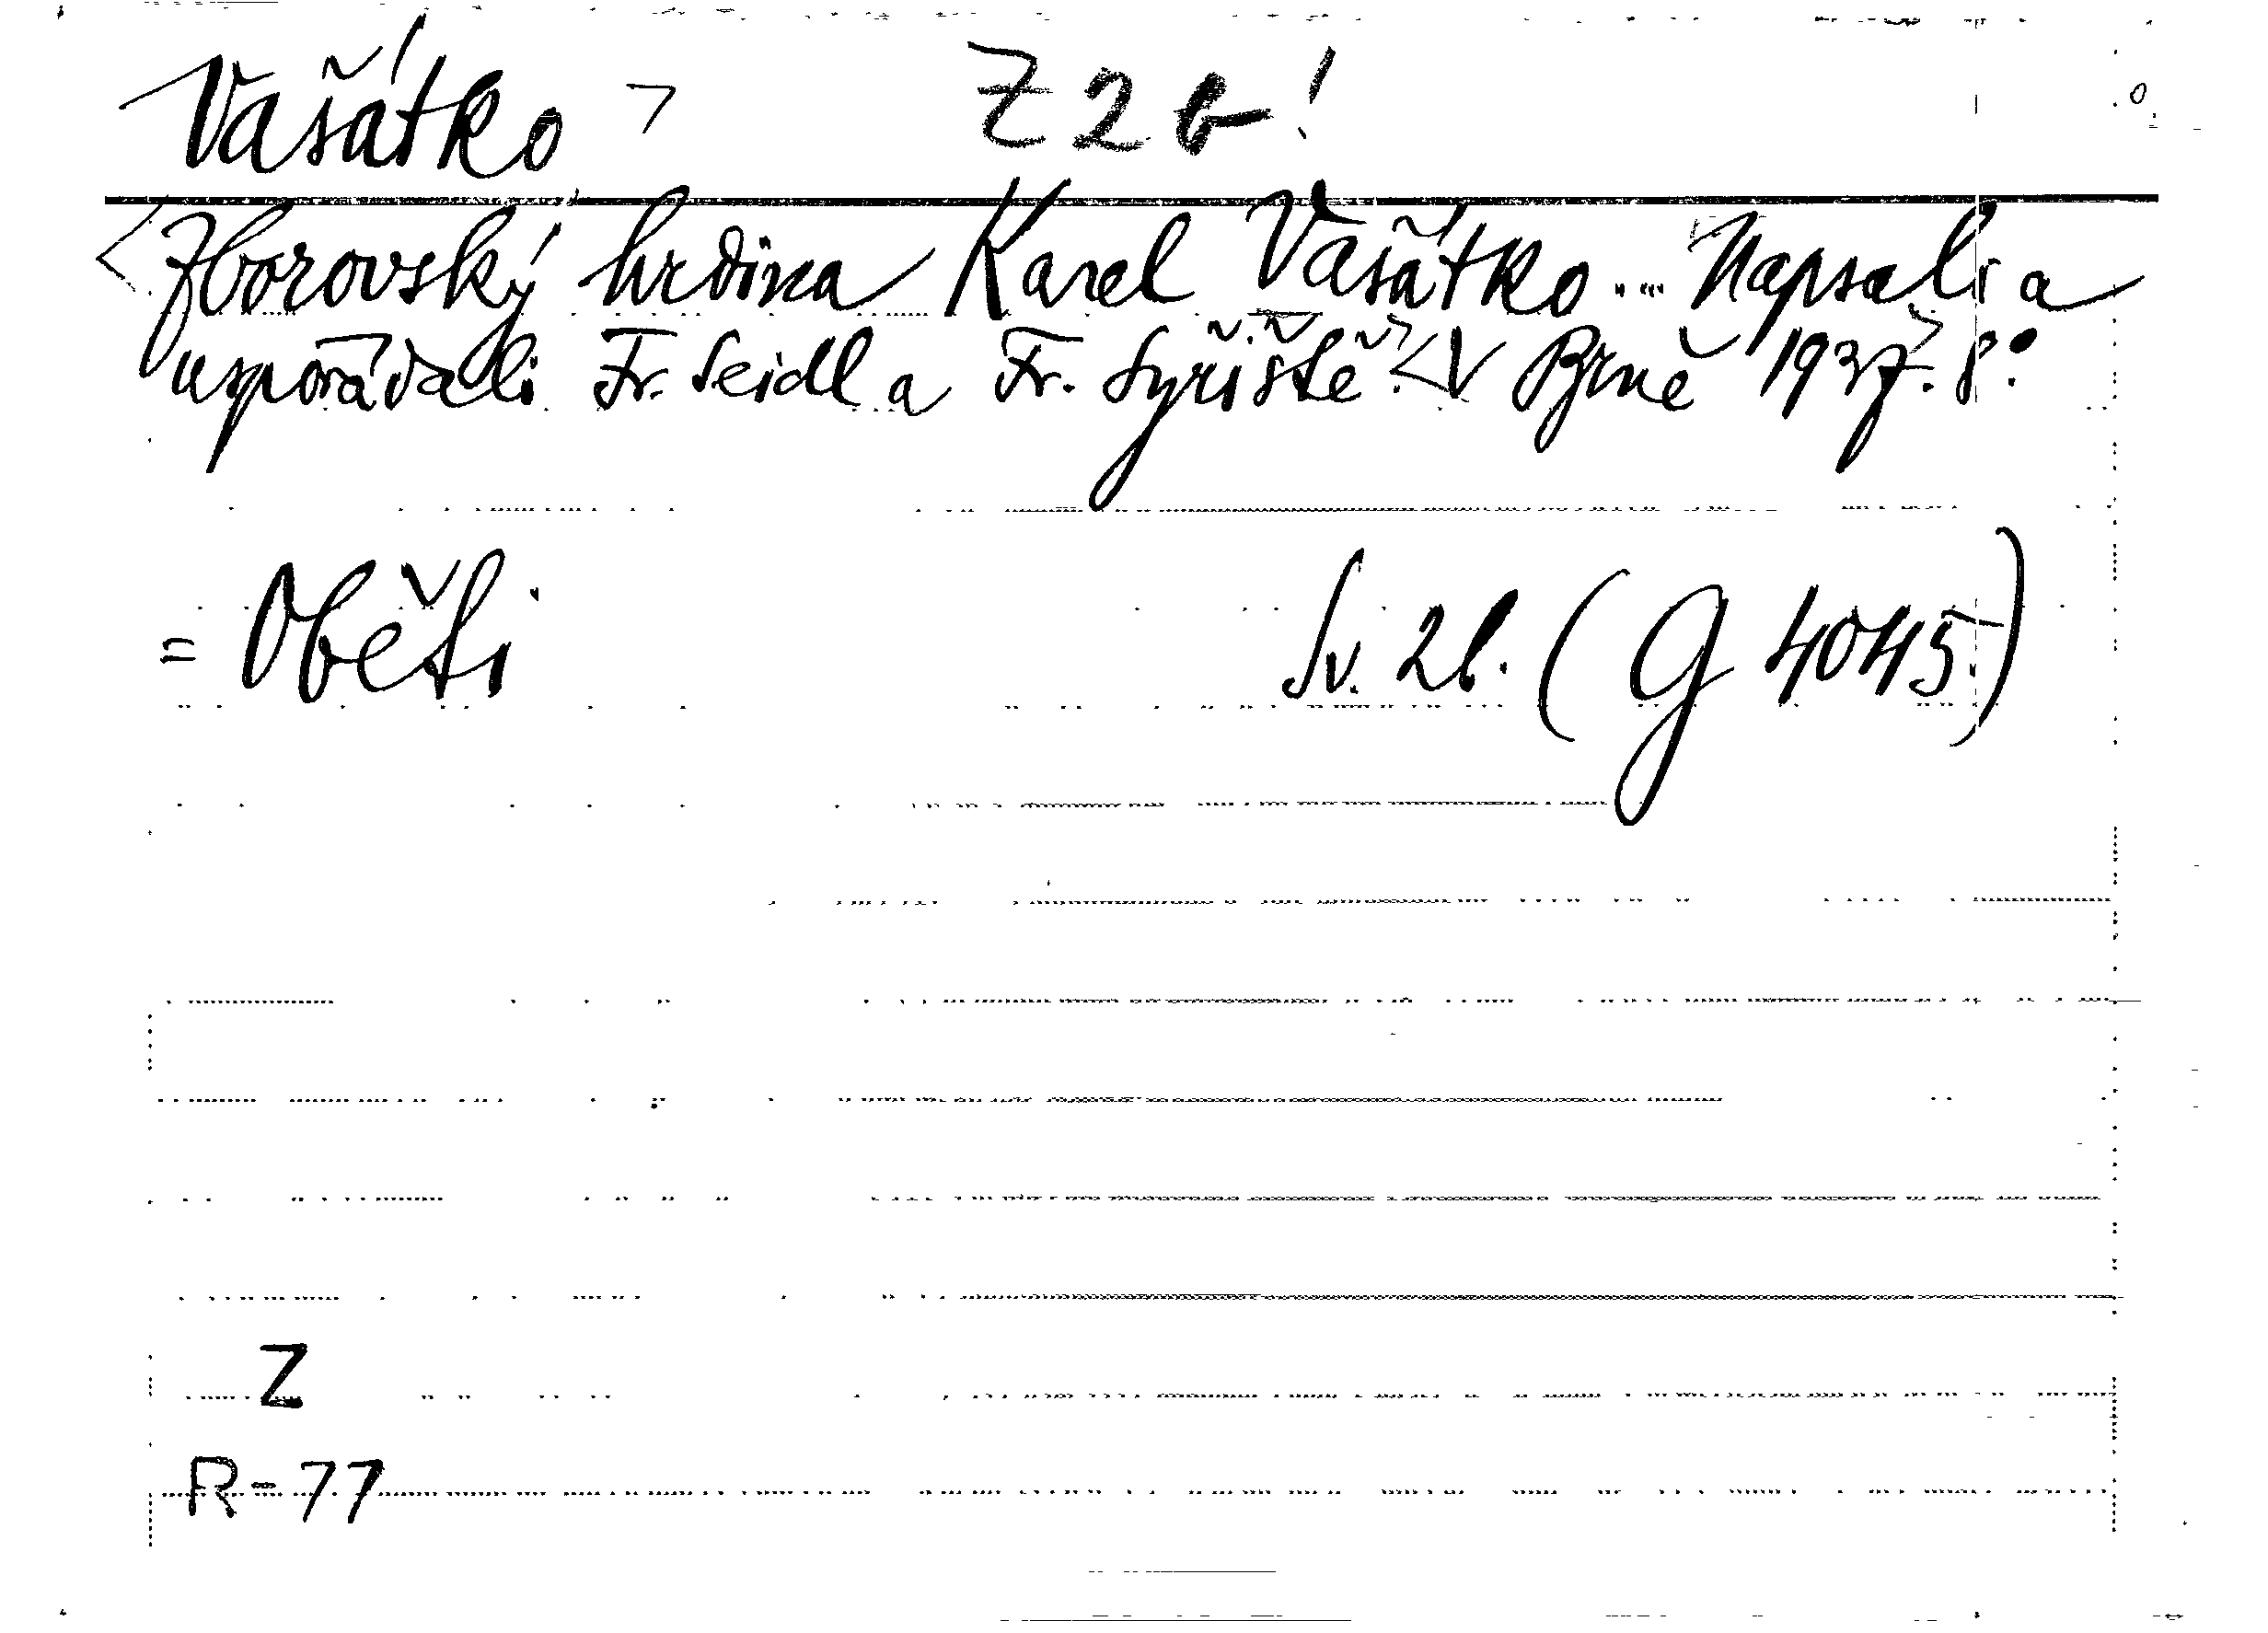 Vašátko Z 2 b!
Zborovský hrdina Karel Vašátko ... Napsali a
uspořádali Fr. Seidl a Fr. Syřiště. V Brně 1937. 8°.
= Oběti Sv. 21. (G 4045.)
Z
R-77